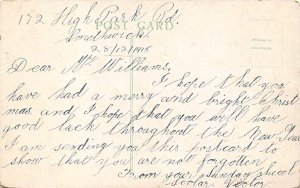 172 High Park Rd.
POST CARD
Smethwick.
28/12/1915
Dear Mr Williams,
I hope that you
have had a merry and bright Christ
mas. and I hope that you will have
good luck throughout the New Year
I am sending you this postcard to
show that you are not forgotten
From your Sunday school
Scolar. Victor